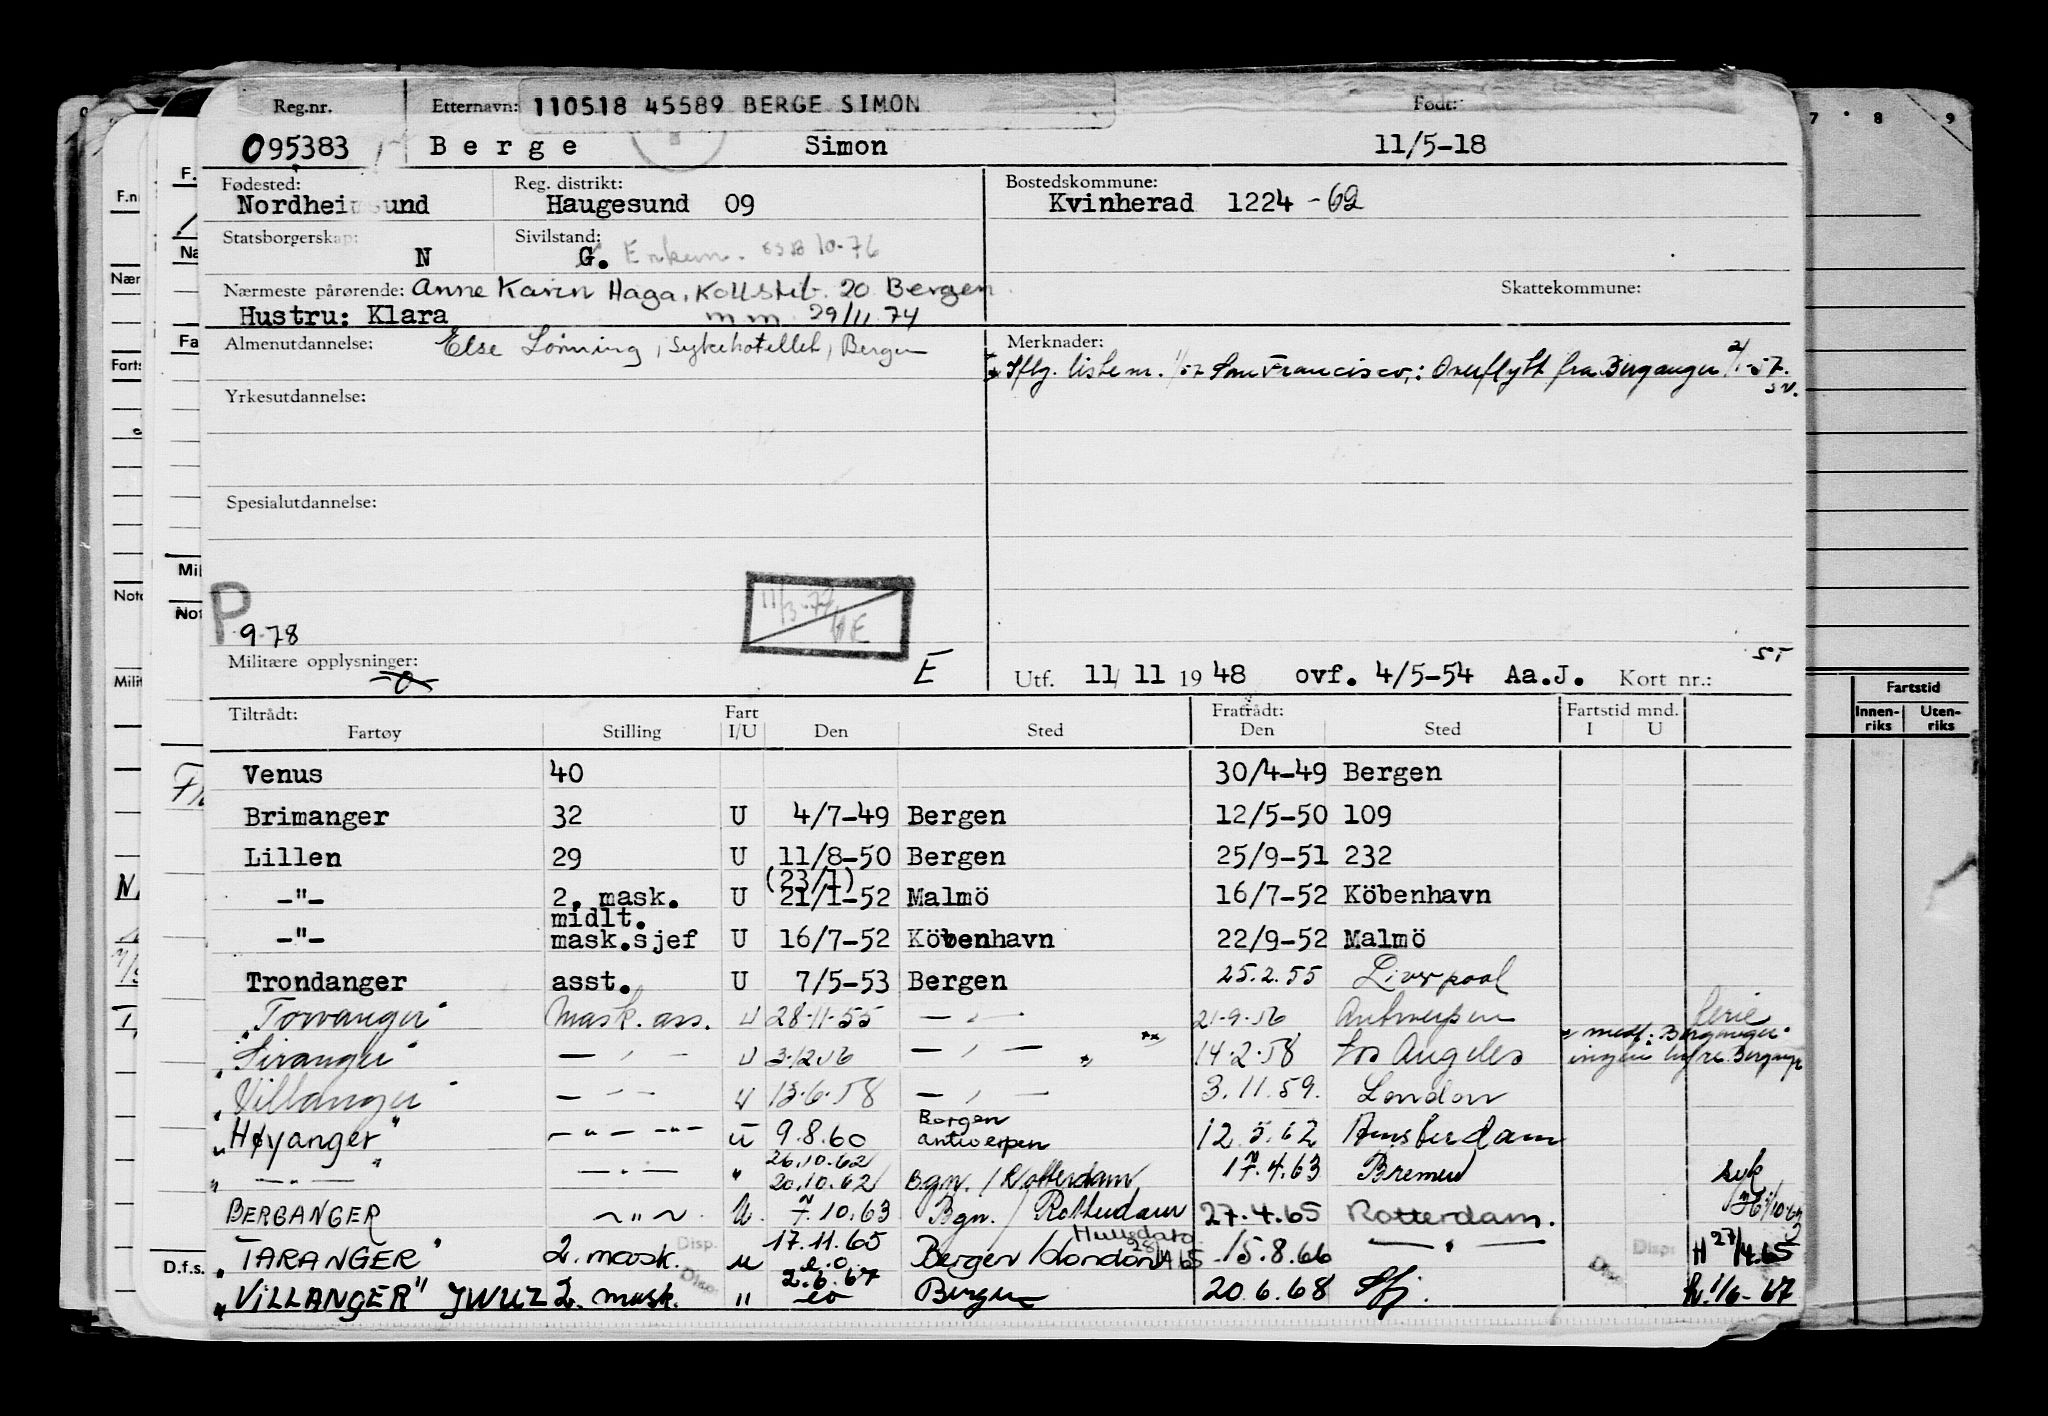 Reg.nr. Etternavn: 110518 45589 BERGE SIMON Født:
095383 Berge Simon 11/5-18
Fødested: Reg. distrikt: Bostedskommune:
Nordheimsund Haugesund 09 Kvinherad 1224 -62
Statsborgerskap: Sivilstand:
N G. Enkem. 10-76
Nærmeste pårørende: Anne Karin Haga, Kollstib. 20 Bergen Skattekommune:
Hustru: Klara m m. 29/11.74
Almenutdannelse: Else Lønning, Sykehotellet, Bergen Merknader:
Iflg. liste nr. 1/57 San Francisco,: Overflytt fra Berganger 2/1-57.
sv.
Yrkesutdannelse:
Spesialutdannelse:
P 9-78
11/3-77
Militære opplysninger:
-0-
E
ST
Utf. 11/11 1948 ovf. 4/5-54 Aa.J. Kort nr.:
Tiltrådt: Fart Fratrådt: Fartstid mnd.
Fartøy Stilling I/U Den Sted Den Sted I U
Venus 40 30/4-49 Bergen
Brimanger 32 U 4/7-49 Bergen 12/5-50 109
Lillen 29 U 11/8-50 Bergen 25/9-51 232
(23/1)
-"- 2. mask. U 21/1-52 Malmö 16/7-52 Köbenhavn
midlt.
-"- mask.sjef U 16/7-52 Köbenhavn 22/9-52 Malmö
Trondanger asst. U 7/5-53 Bergen 25.2.55 Liverpool
"Torvanger" Mask. ass. U 28-11-55 — " — 21-9-56 Antwerpen ferie
"Siranger" — " — U 3.12.56 — " — 14-2-58 Los Angeles
"Villanger" — " — U 13-6-58 — " — 3.11.59. London
Bergen
"Høyanger" — " — " — U 9.8.60 antwerpen 12.5.62 Amsterdam
26.10.62
" — " — " — " — " 20.10.62 Bgn. / Rotterdam 17.4.63 Bremen syk
BERGANGER ~ " ~ U. 7.10.63 Bgn. / Rotterdam 27.4.65 Rotterdam.
17.11.65
"TARANGER" 2. mask. Disp. u e.o. Bergen / London 15.8.66 — " — Disp. H 27/4.65
2.6.67
"VILLANGER" JWUZ 2. mask. Disp. " eo Bergen 20.6.68 Sfj. Disp. h. 1/6-67
Fartstid
Innen-riks Uten-riks
7 8 9
F.nr
Nær
Farts
Mil
Note
Milit
D.f.s.